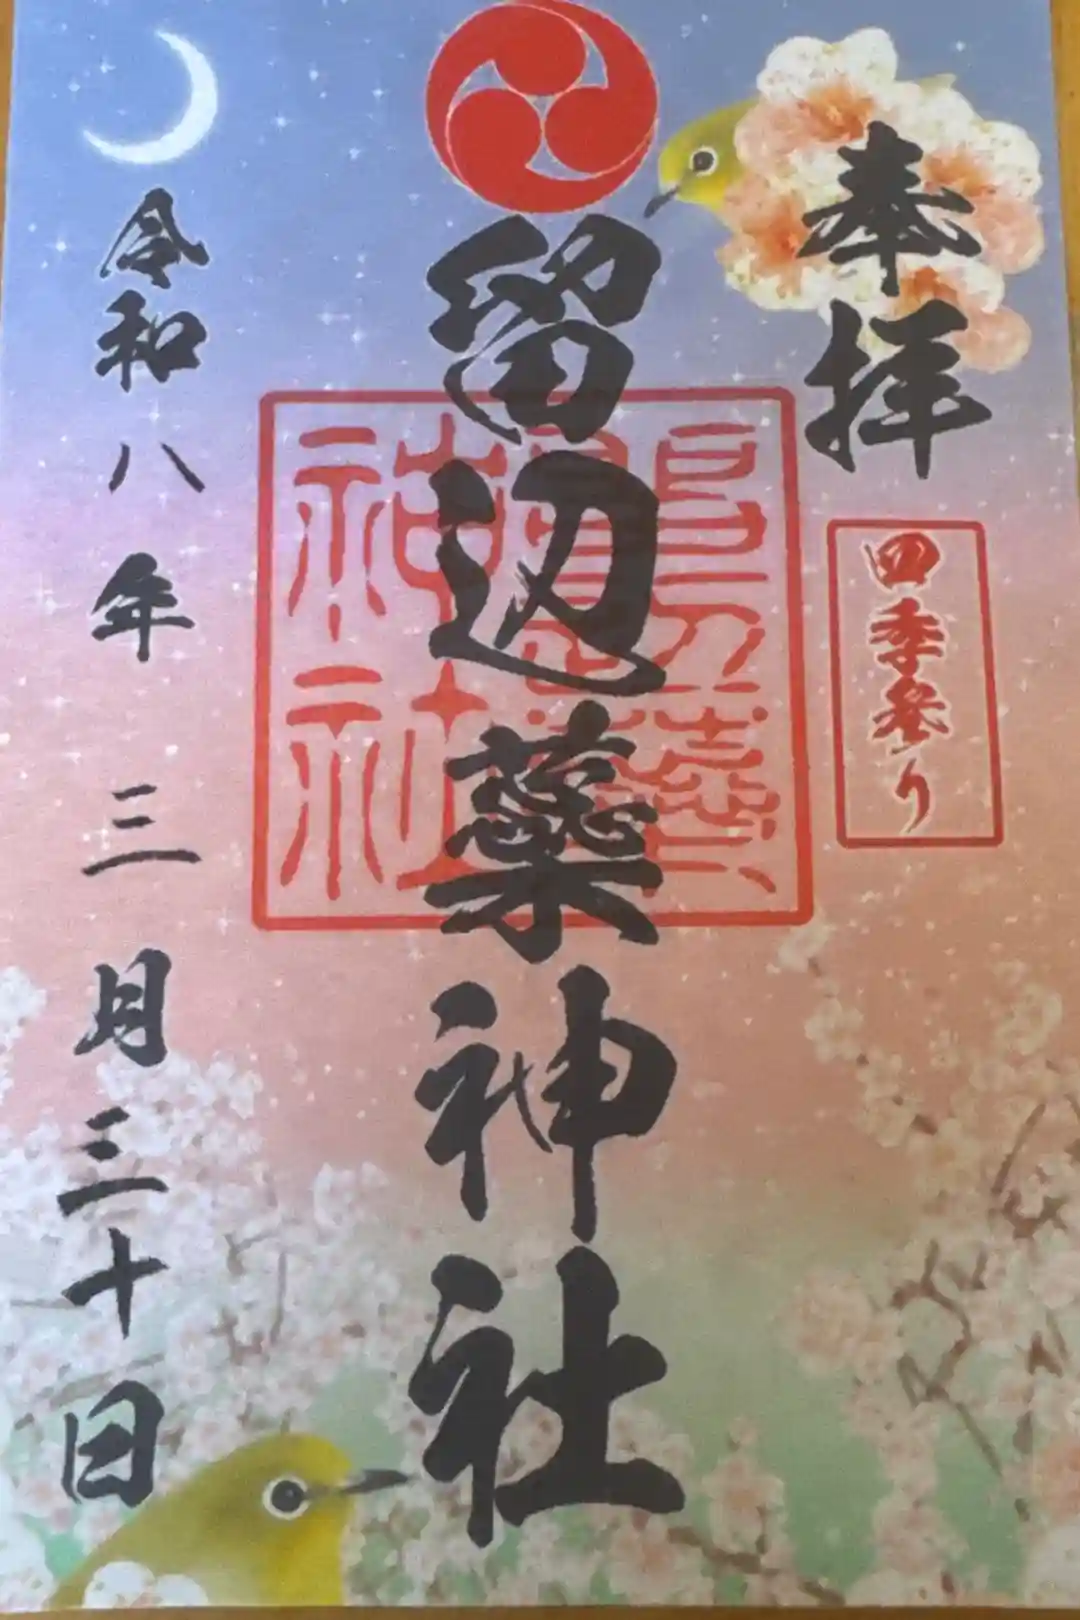 奉拝
四季参り
留辺蘂神社
神社
令和八年三月三十日